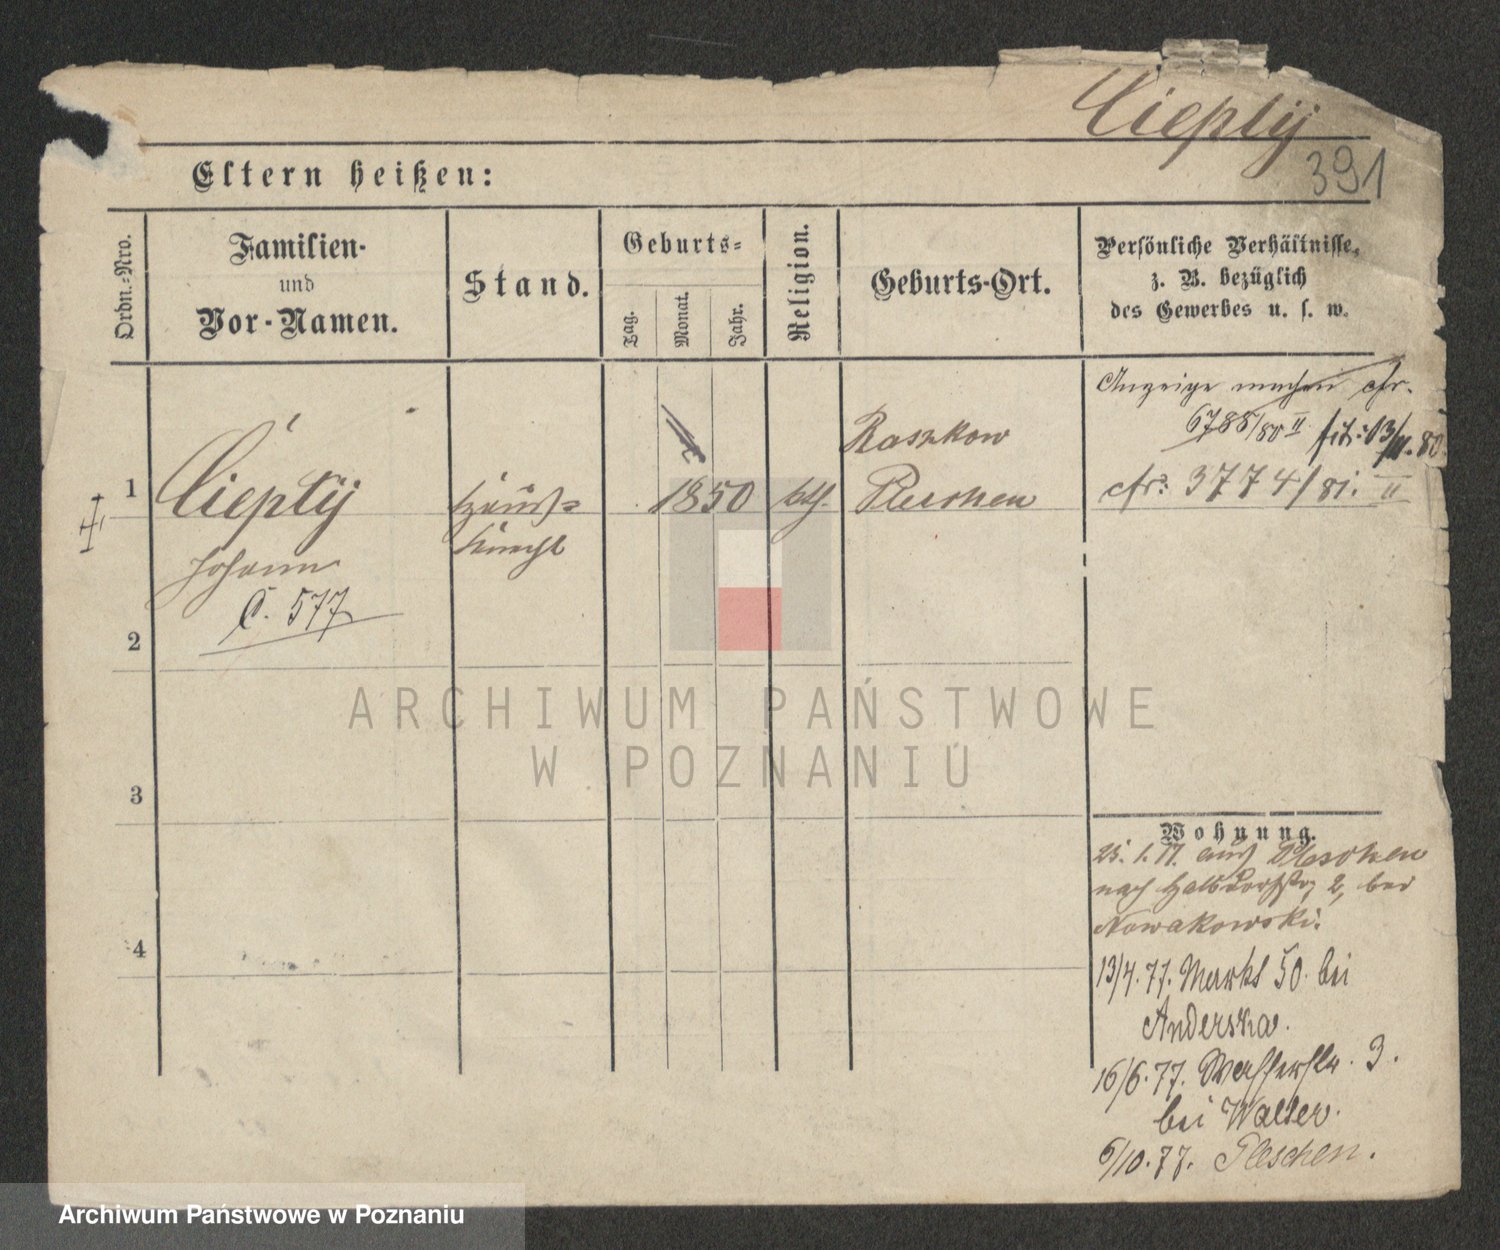 Cieplÿ
391
Eltern heißen:
Ordn.-Nro.
Familien-
und
Vor-Namen.
Stand.
Geburts-
Tag.
Monat.
Jahr.
Religion.
Geburts-Ort.
Persönliche Verhältnisse,
z. B. bezüglich
des Gewerbes u. s. w.
Anzeige machen cfr.
6785/80 II 13/11.80
cfr. 3774/81. II
1
Cieplÿ
Johann
C. 577
Haus=
knecht
1850
kth.
Raszkow
Pleschen
2
3
4
Wohnung.
25. 1. 77. aus Pleschen
nach Halbdorfstr 2, bei
Nowakowski.
13/4.77. Markt 50. bei
Anderska.
16/6.77. Wasserstr. 3.
bei Walter.
6/10.77. Pleschen.
ARCHIWUM PAŃSTWOWE
W POZNANIU
Archiwum Państwowe w Poznaniu